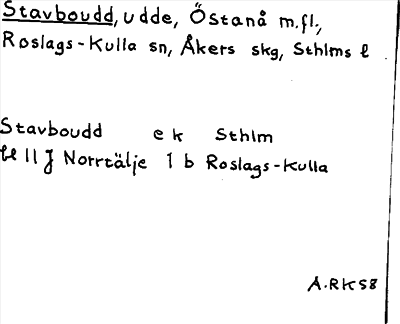 Stavboudd, udde, Östanå m.fl.,
Roslags-Kulla sn, Åkers skg, Sthlms l
Stavboudd e k Sthlm
bl 11 J Norrtälje 1 b Roslags-Kulla
A.RK58